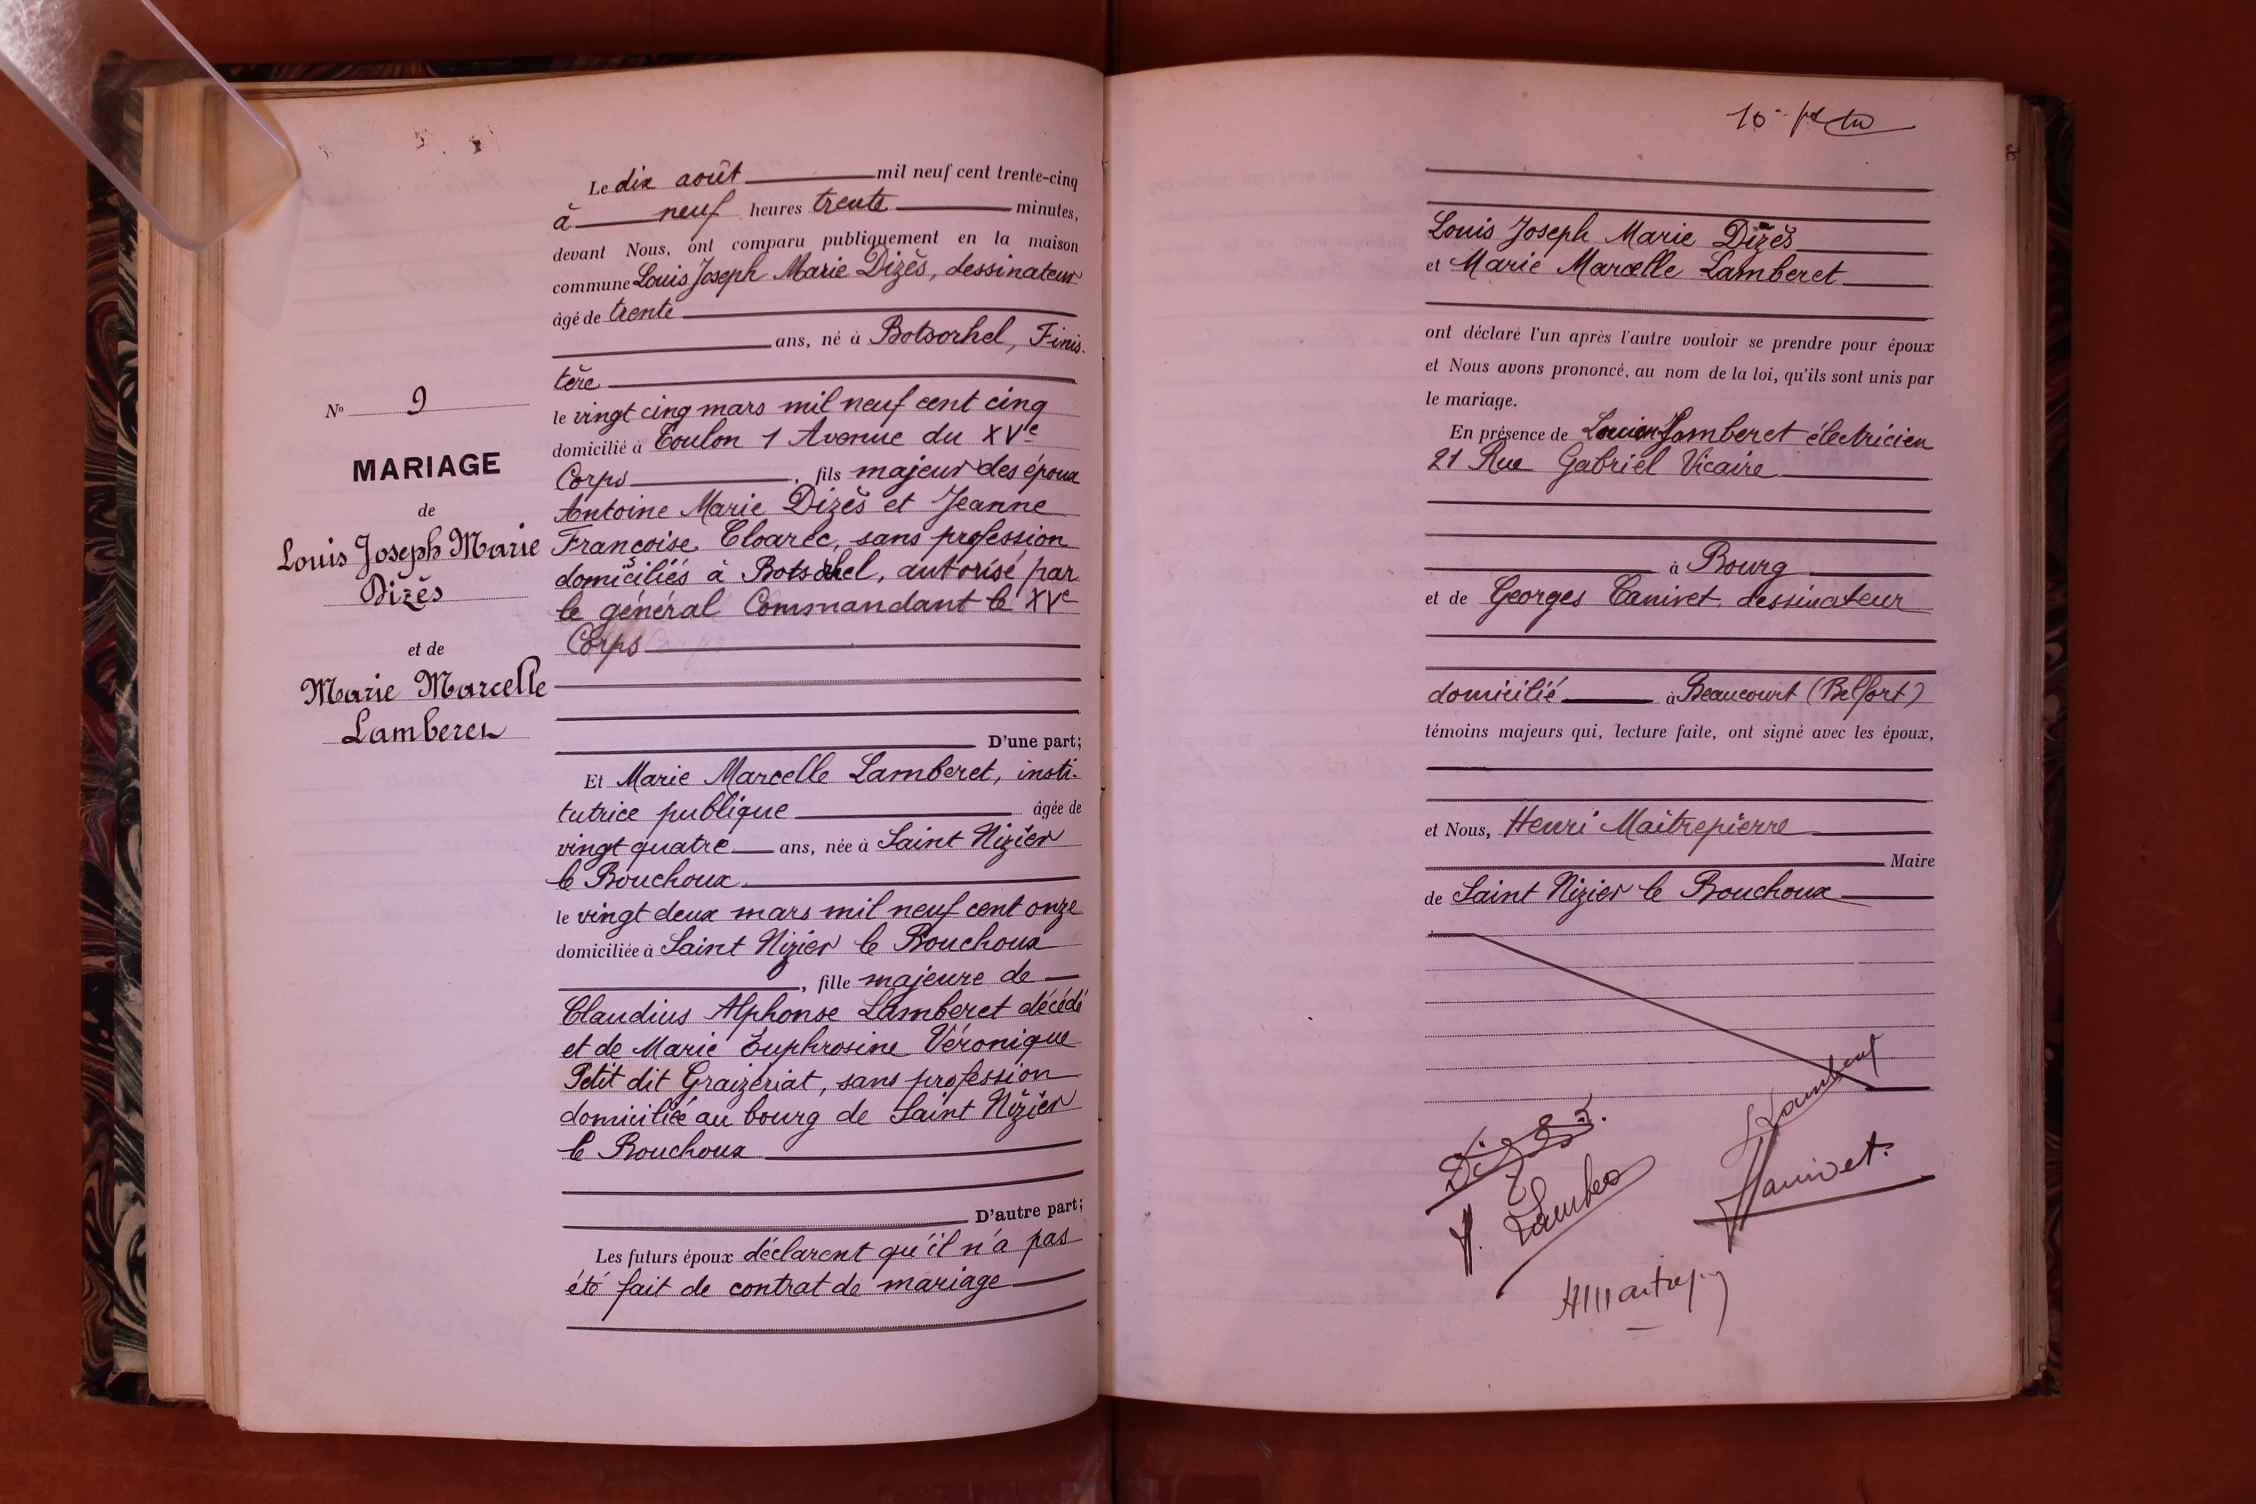 N° 9
MARIAGE
de
Louis Joseph Marie
Dizès
et de
Marie Marcelle
Lamberet
Le dix août mil neuf cent trente-cinq
à neuf heures trente minutes,
devant Nous, ont comparu publiquement en la maison
commune Louis Joseph Marie Dizès, dessinateur
âgé de trente
ans, né à Botsorhel, Finis-
tère
le vingt cinq mars mil neuf cent cinq
domicilié à Toulon 1 Avenue du XVe
Corps, fils majeur des époux
Antoine Marie Dizès et Jeanne
Françoise Cloarec, sans profession
domiciliés à Botsorhel, autorisé par
le général Commandant le XVe
Corps
D'une part;
Et Marie Marcelle Lamberet, insti-
tutrice publique âgée de
vingt quatre ans, née à Saint Nizier
le Bouchoux
le vingt deux mars mil neuf cent onze
domiciliée à Saint Nizier le Bouchoux
, fille majeure de
Claudius Alphonse Lamberet décédé
et de Marie Euphrosine Véronique
Petit dit Graizeriat, sans profession
domiciliée au bourg de Saint Nizier
le Bouchoux
D'autre part;
Les futurs époux déclarent qu'il n'a pas
été fait de contrat de mariage
Louis Joseph Marie Dizès
et Marie Marcelle Lamberet
ont déclaré l'un après l'autre vouloir se prendre pour époux
et Nous avons prononcé, au nom de la loi, qu'ils sont unis par
le mariage.
En présence de Lamberet électricien
21 Rue Gabriel Vicaire
à Bourg
et de Georges Canivet dessinateur
domicilié à Beaucourt (Belfort)
témoins majeurs qui, lecture faite, ont signé avec les époux,
et Nous, Henri Maitrepierre
Maire
de Saint Nizier le Bouchoux
Dizès